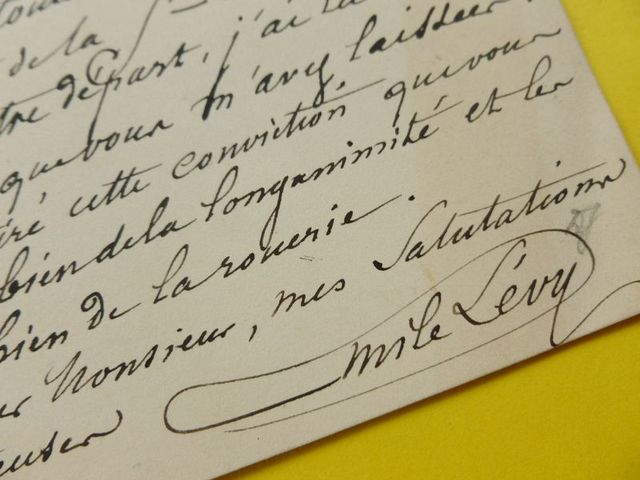 de la
départ, j'ai la
que vous m'avez laissée.
cette conviction, que vous
bien de la longanimité et les
bien de la rouerie.
Monsieur, mes Salutations
Emile Lévy